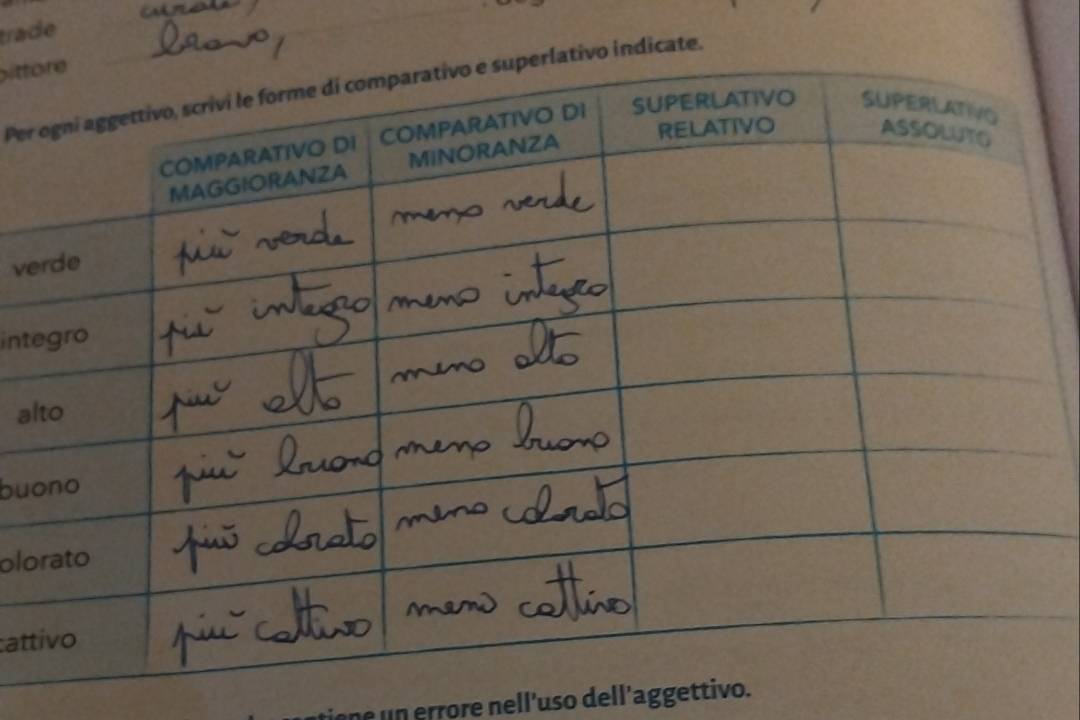 trade
bravo,
pittore
Per ogni aggettivo, scrivi le forme di comparativo e superlativo indicate.
COMPARATIVO DI MAGGIORANZA COMPARATIVO DI MINORANZA SUPERLATIVO RELATIVO SUPERLATIVO ASSOLUTO
verde più verde meno verde
integro più integro meno integro
alto più alto meno alto
buono più buono meno buono
olorato più colorato meno colorato
cattivo più cattivo meno cattivo
contiene un errore nell'uso dell'aggettivo.